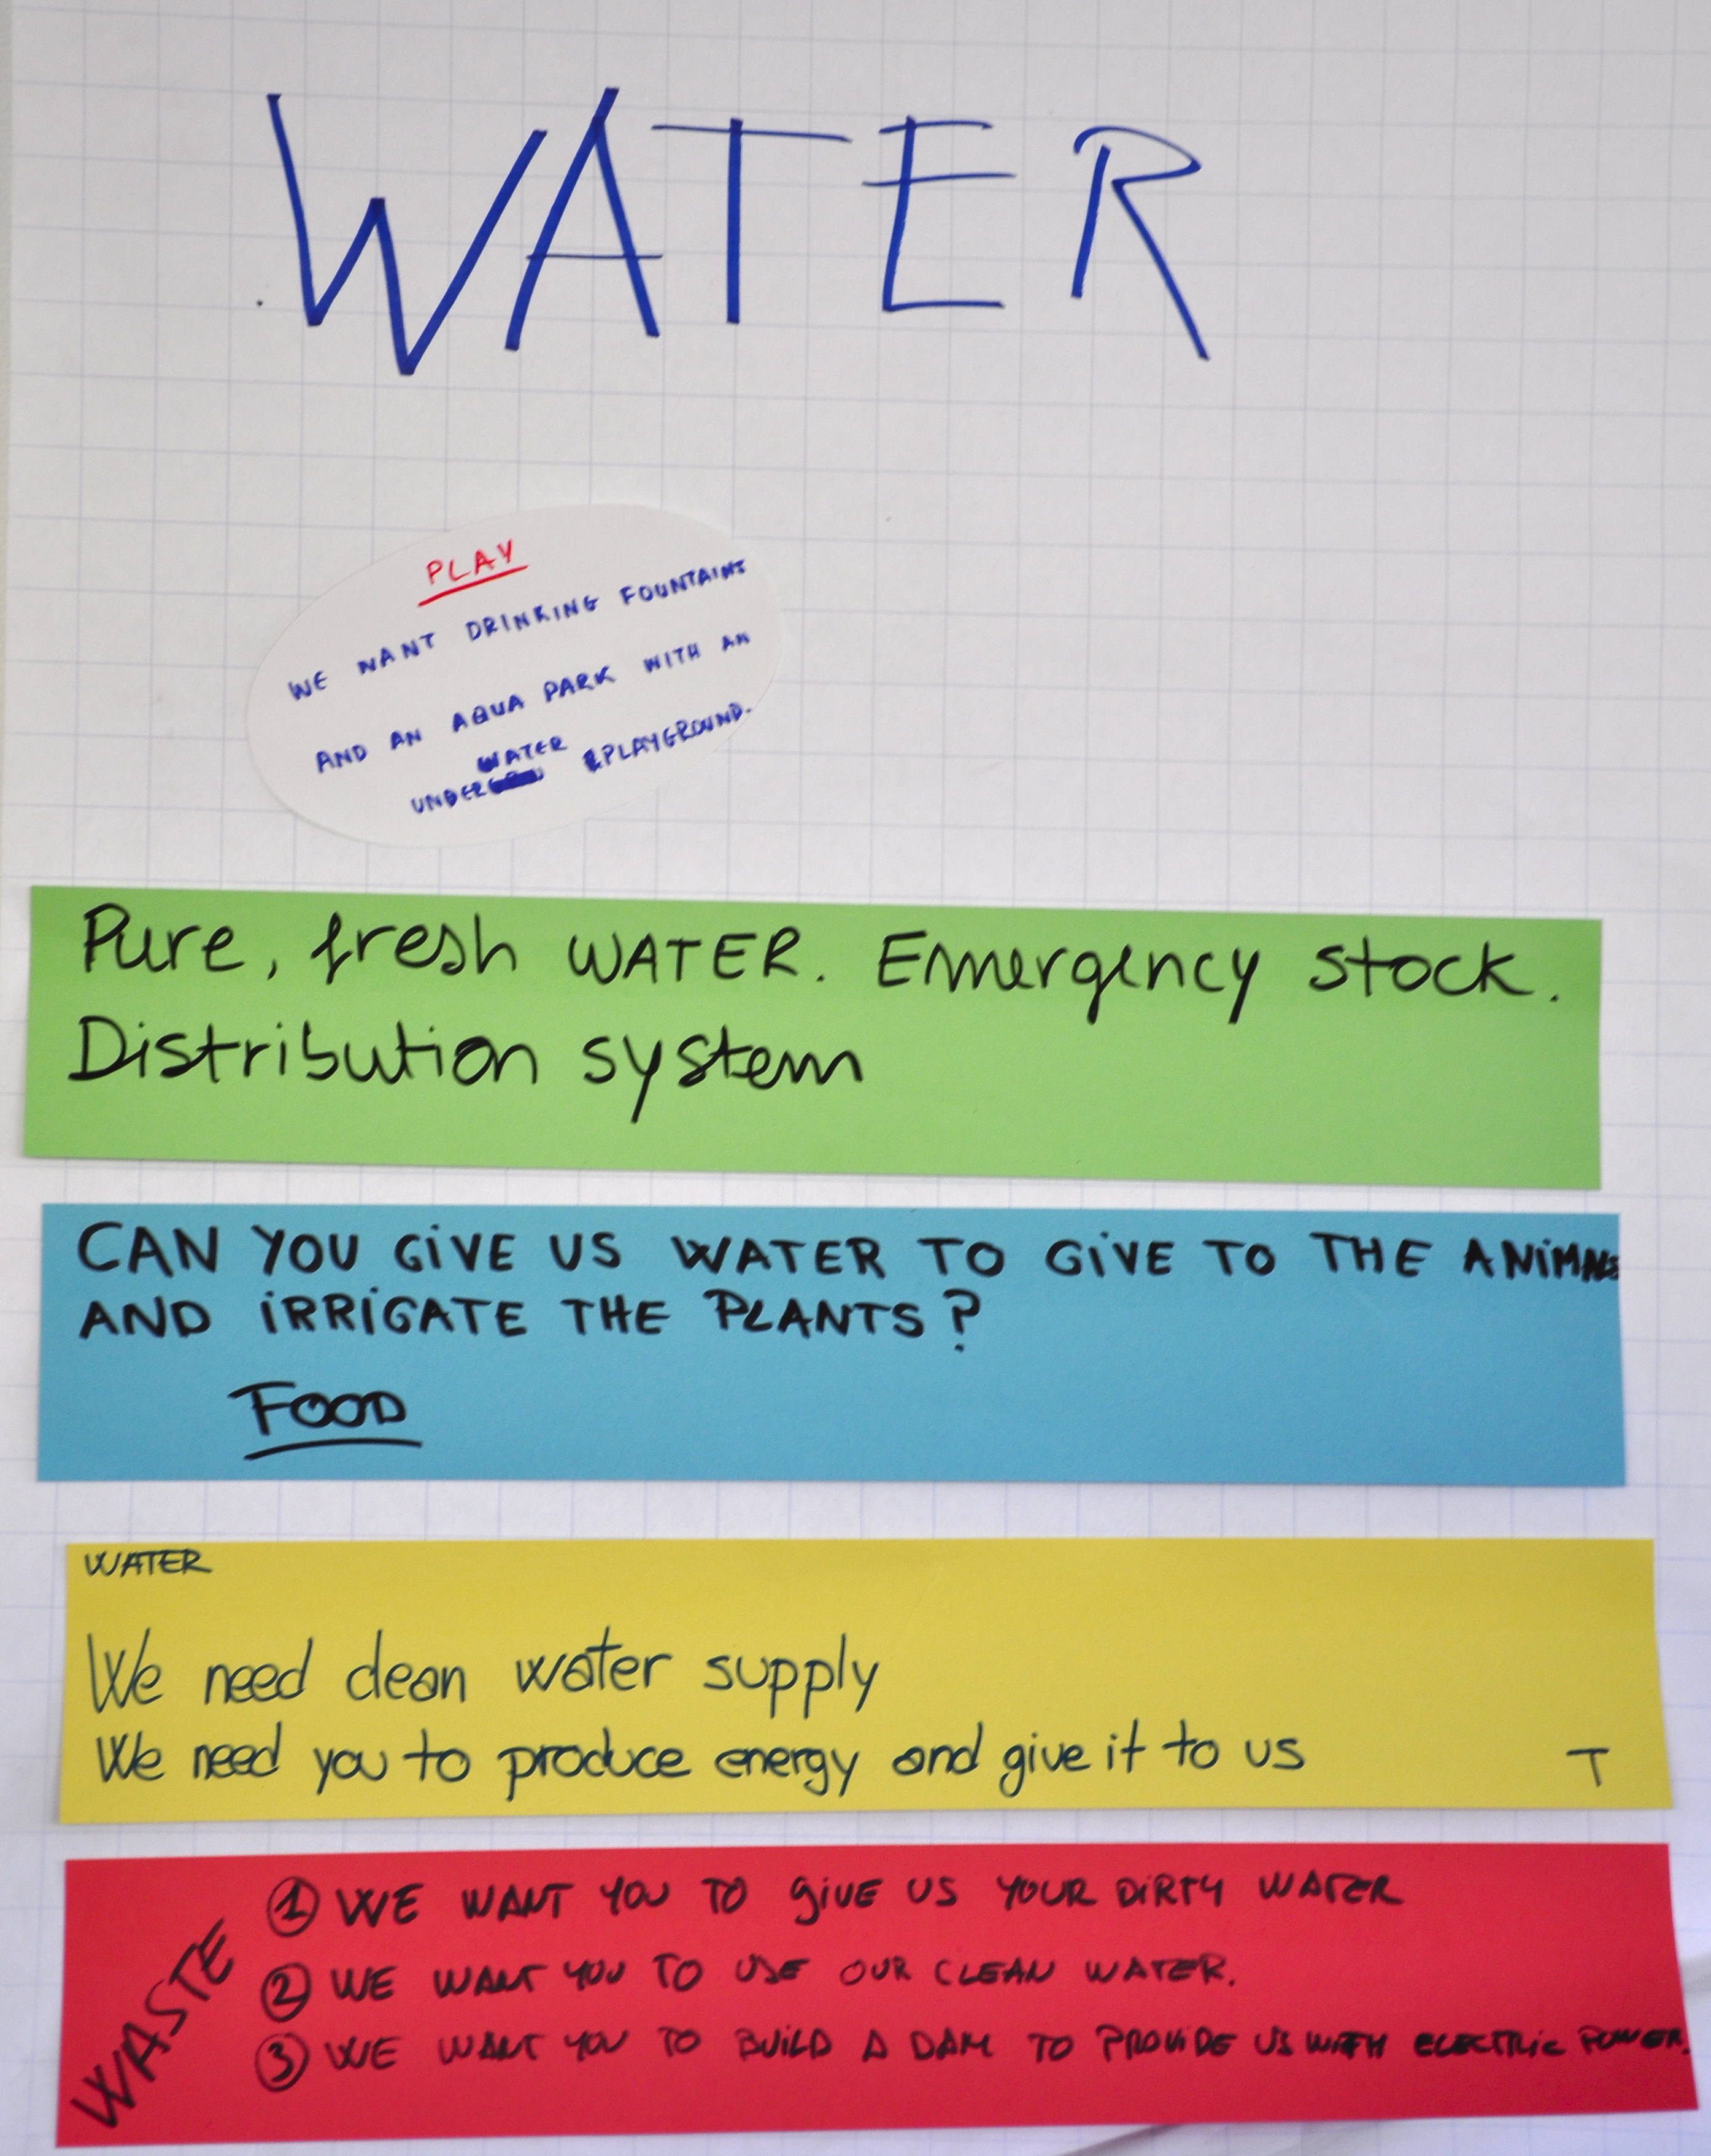 WATER
PLAY
WE WANT DRINKING FOUNTAINS
AND AN AQUA PARK WITH AN
UNDERWATER PLAYGROUND.
Pure, fresh WATER. Emergency stock.
Distribution system
CAN YOU GIVE US WATER TO GIVE TO THE ANIMALS
AND IRRIGATE THE PLANTS?
FOOD
WATER
We need clean water supply
We need you to produce energy and give it to us
T
WASTE
1 WE WANT YOU TO GIVE US YOUR DIRTY WATER
2 WE WANT YOU TO USE OUR CLEAN WATER.
3 WE WANT YOU TO BUILD A DAM TO PROVIDE US WITH ELECTRIC POWER.